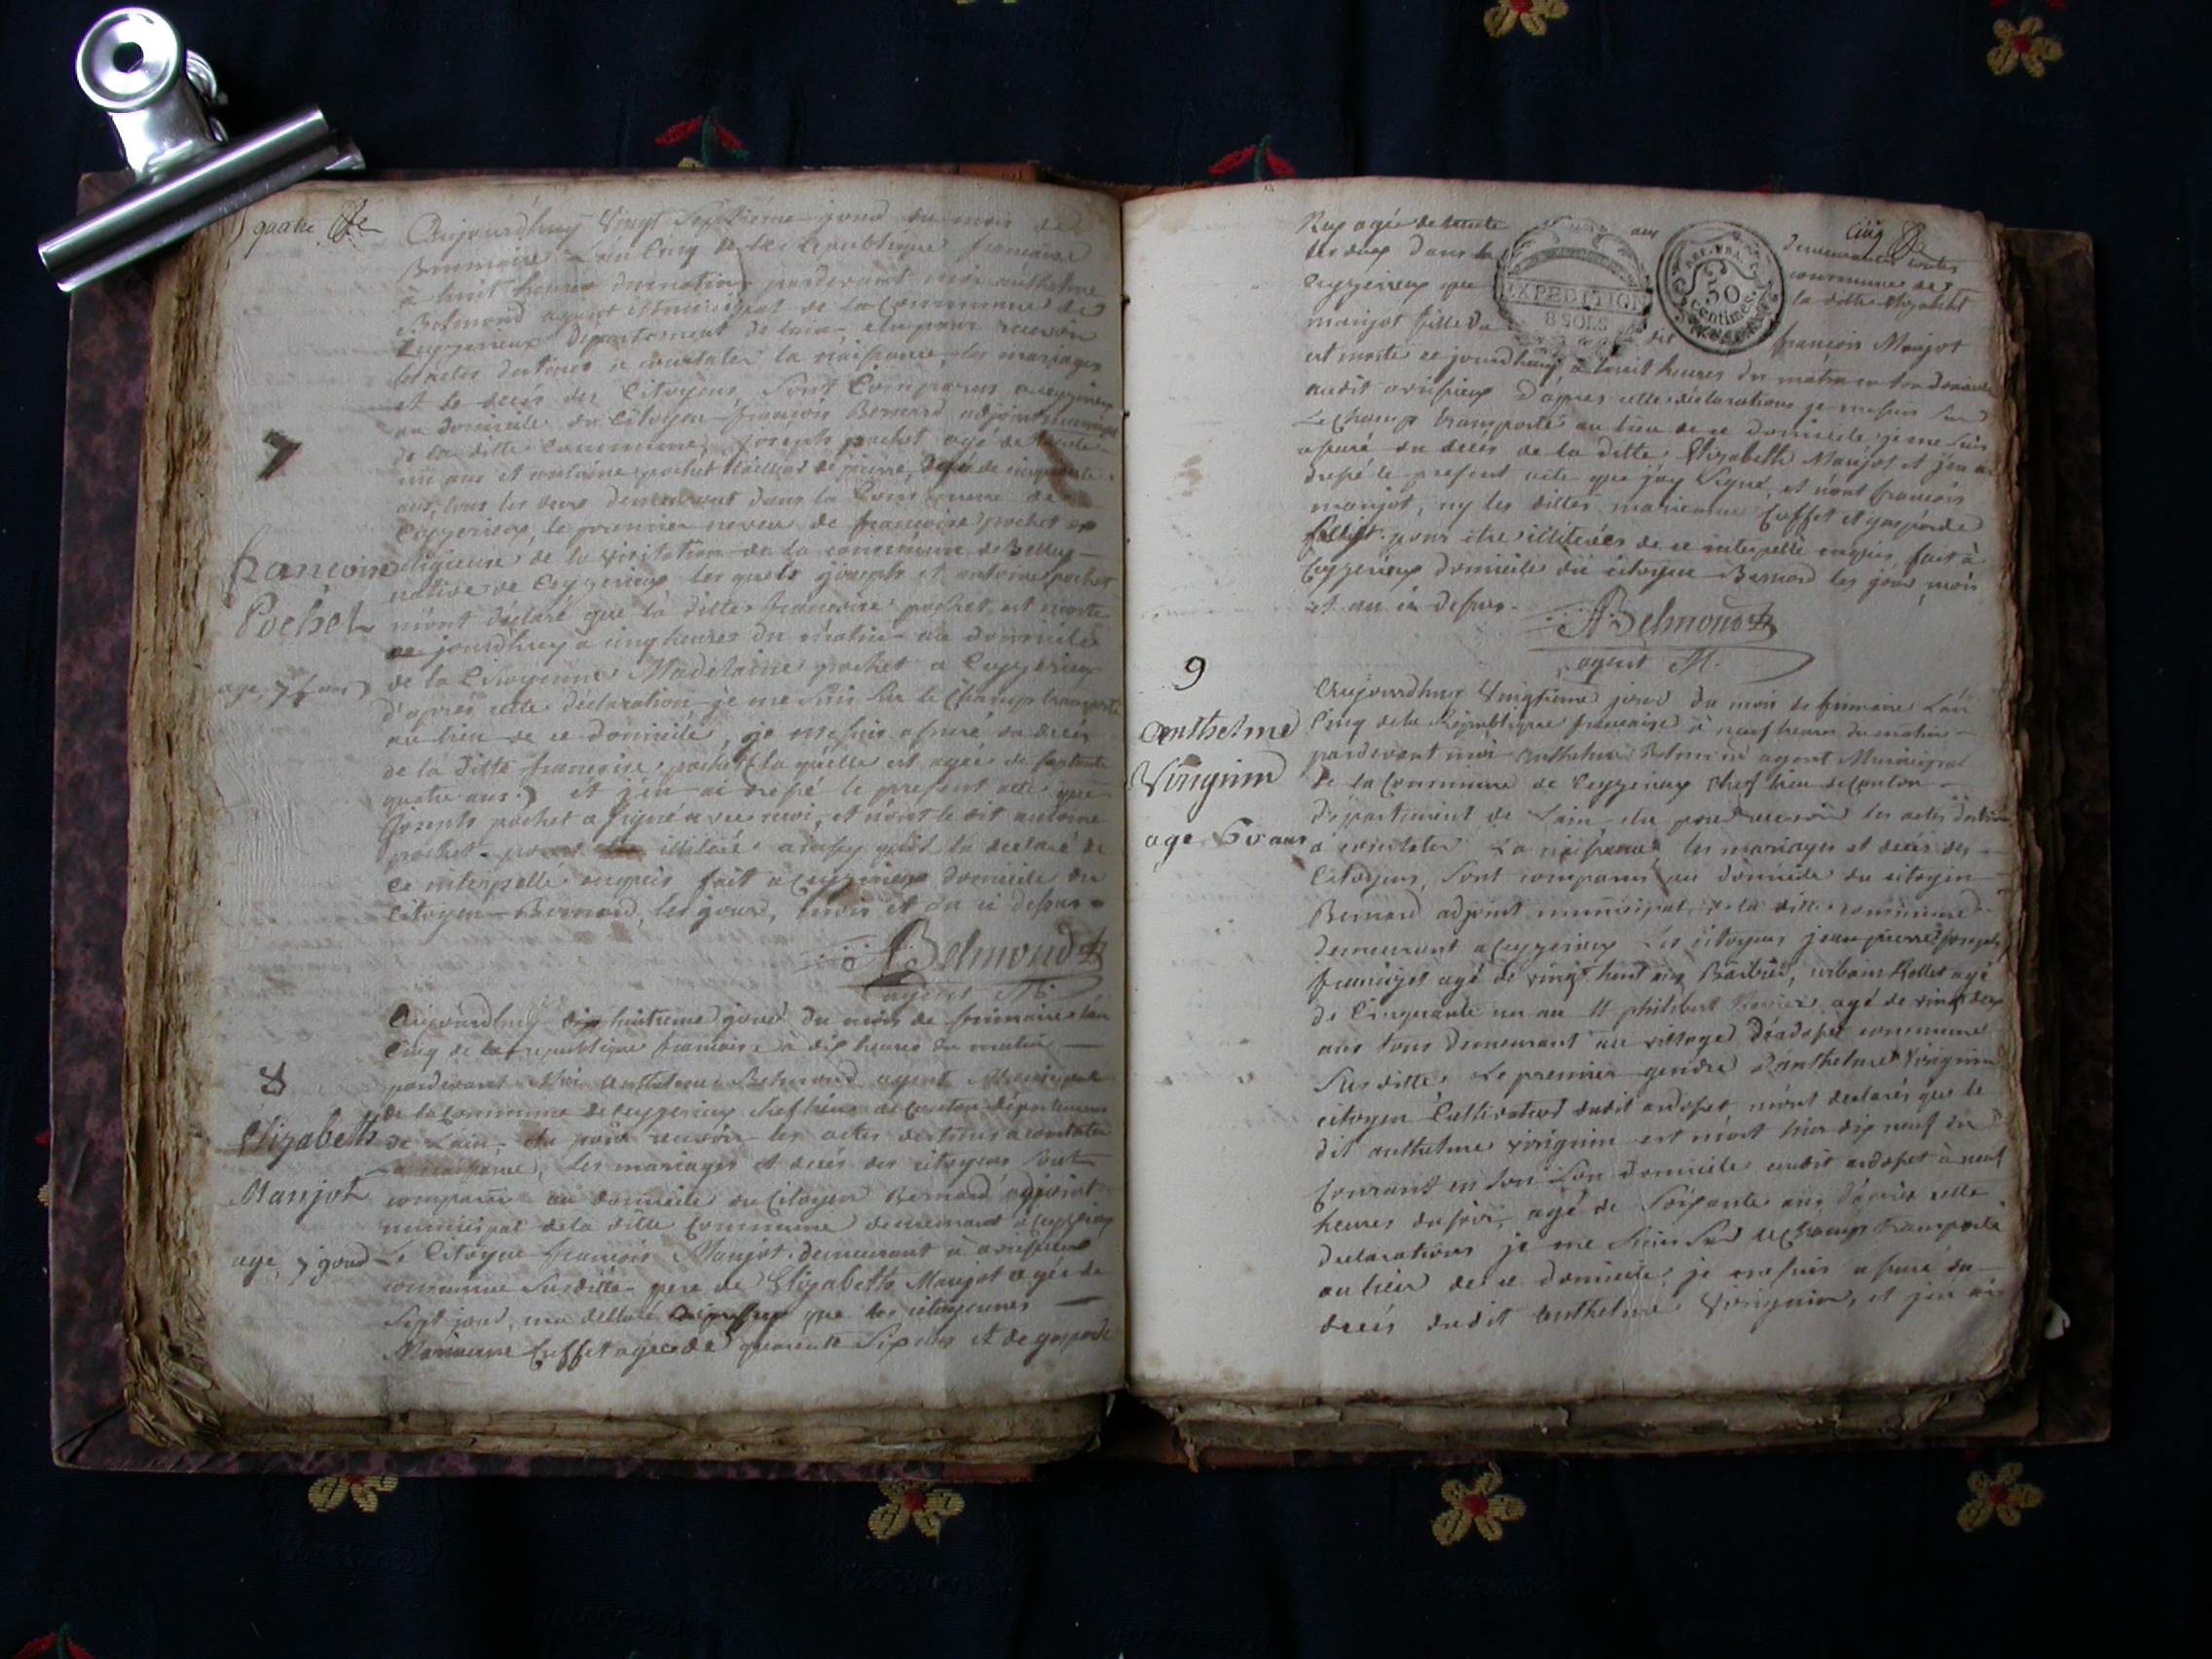 quatre
Aujourdhuy Vingt Septieme jour du mois de
Brumaire L'an Cinq de la republique francaise
à huit heures du matin pardevant moi anthelme
Belmond agent Municipal de la Commune de
Ceyzerieux Departement de lain elu pour recevoir
les actes destinés a constater la naissance les mariages
et le decès des Citoyens, Sont Comparus a ceyzerieux
au domicile du Citoyen francois Bernard adjoint municipal
de la ditte Commune, joseph pochet agé de trente
un ans et antoine pochet tailleur de pierre, agé de cinquante
ans, tous les deux demeurant dans la Commune de
Ceyzerieux, le premier neveu de francoise pochet ex
religieuse de la visitation de la commune de Belley
native de Ceyzerieux les quels joseph et antoine pochet
m'ont declaré que la ditte francoise pochet est morte
ce jourdhuy a cinq heures du matin au domicile
de la Citoyenne Madelaine pochet a Ceyzerieux
d'après cette declaration je me suis sur le Champ transporté
au lieu de ce domicile, je me suis assuré du decès
de la ditte francoise pochet (la quelle est agée de septante
quatre ans) et j'en ai dressé le present acte que
Joseph pochet a signé avec moi, et non le dit antoine
pochet pour illiteré ainsy qu'il la declaré de
ce interpellé enquis fait a Ceyzerieux domicile du
Citoyen Bernard, les jour, mois et an ci dessus
ABelmond
agent M.
7
francoise
Pochet
age 74 ans
Aujourdhuy dix huitieme jour du mois de frimaire l'an
Cinq de la republique francaise à dix heures du matin
pardevant moi anthelme Belmond agent Municipal
de la Commune de Ceyzerieux chef lieu de Canton departement
de Lain elu pour recevoir les actes destinés a constater
la naissance, les mariages et decés des citoyens sont
comparus au domicile du Citoyen Bernard adjoint
municipal de la ditte Commune demeurant à Ceyzerieux
Le Citoyen francois Manjot demeurant à avrissieux
commune susditte pere de Elizabeth Manjot agée de
Sept jour, ma declaré que les citoyennes
Marianne Cuffet agée de quarente Six ans et de gasparde
8
Elizabeth
Manjot
age 7 jour
cinq
Rey agée de trente ans demeurantes toutes
les deux dans la commune de
Ceyzerieux que la ditte Elizabeth
manjot fille du dit francois Manjot
est morte ce jourdhuy a huit heures du matin en son domicile
audit avrissieux D'apres cette declaration je me suis sur
Le Champ transporté au lieu de ce domicile je me suis
assuré du decés de la ditte Elizabeth Manjot et j'en ai
dressé le present acte que j'ay Signé, et non francois
manjot, ny les dittes marianne Cuffet et gasparde
pour etre illiterées de ce interpellé enquis, fait à
Ceyzerieux domicile du citoyen Bernard les jour, mois
et an ci dessus.
ABelmond
agent M.
EXPEDITION
8 SOLS
REP. FRA.
50
Centimes
9
Anthelme
Virignin
age 60 ans
Aujourdhuy Vingtieme jour du mois de frimaire L'an
Cinq de la République francaise à neuf heures du matin
pardevant moi Anthelme Belmond agent Municipal
de la Commune de Ceyzerieux Chef lieu de Canton
Département de Lain elu pour recevoir les actes destinés
a constater La naissance, les mariages et decés des
Citoyens, sont comparus au domicile du citoyen
Bernard adjoint municipal de la ditte commune
demeurant a Ceyzerieux Les citoyens jean pierre joseph
francijot agé de vingt huit ans Barbier, urbain Rollet agé
de Cinquante un an et philibert agé de vingt deux
ans tous demeurant au village D'ardosset commune
Susditte Le premier gendre D'anthelme Virignin
citoyen Cultivateur dudit ardosset, m'ont declarés que le
dit anthelme virignin est mort hier dix neuf du
Courant en son domicile audit ardosset à neuf
heures du soir, agé de Soixante ans d'après cette
declaration je me suis Sur le Champ transporté
au lieu de ce domicile, je me suis assuré du
decés dudit Anthelme Virignin, et j'en ai